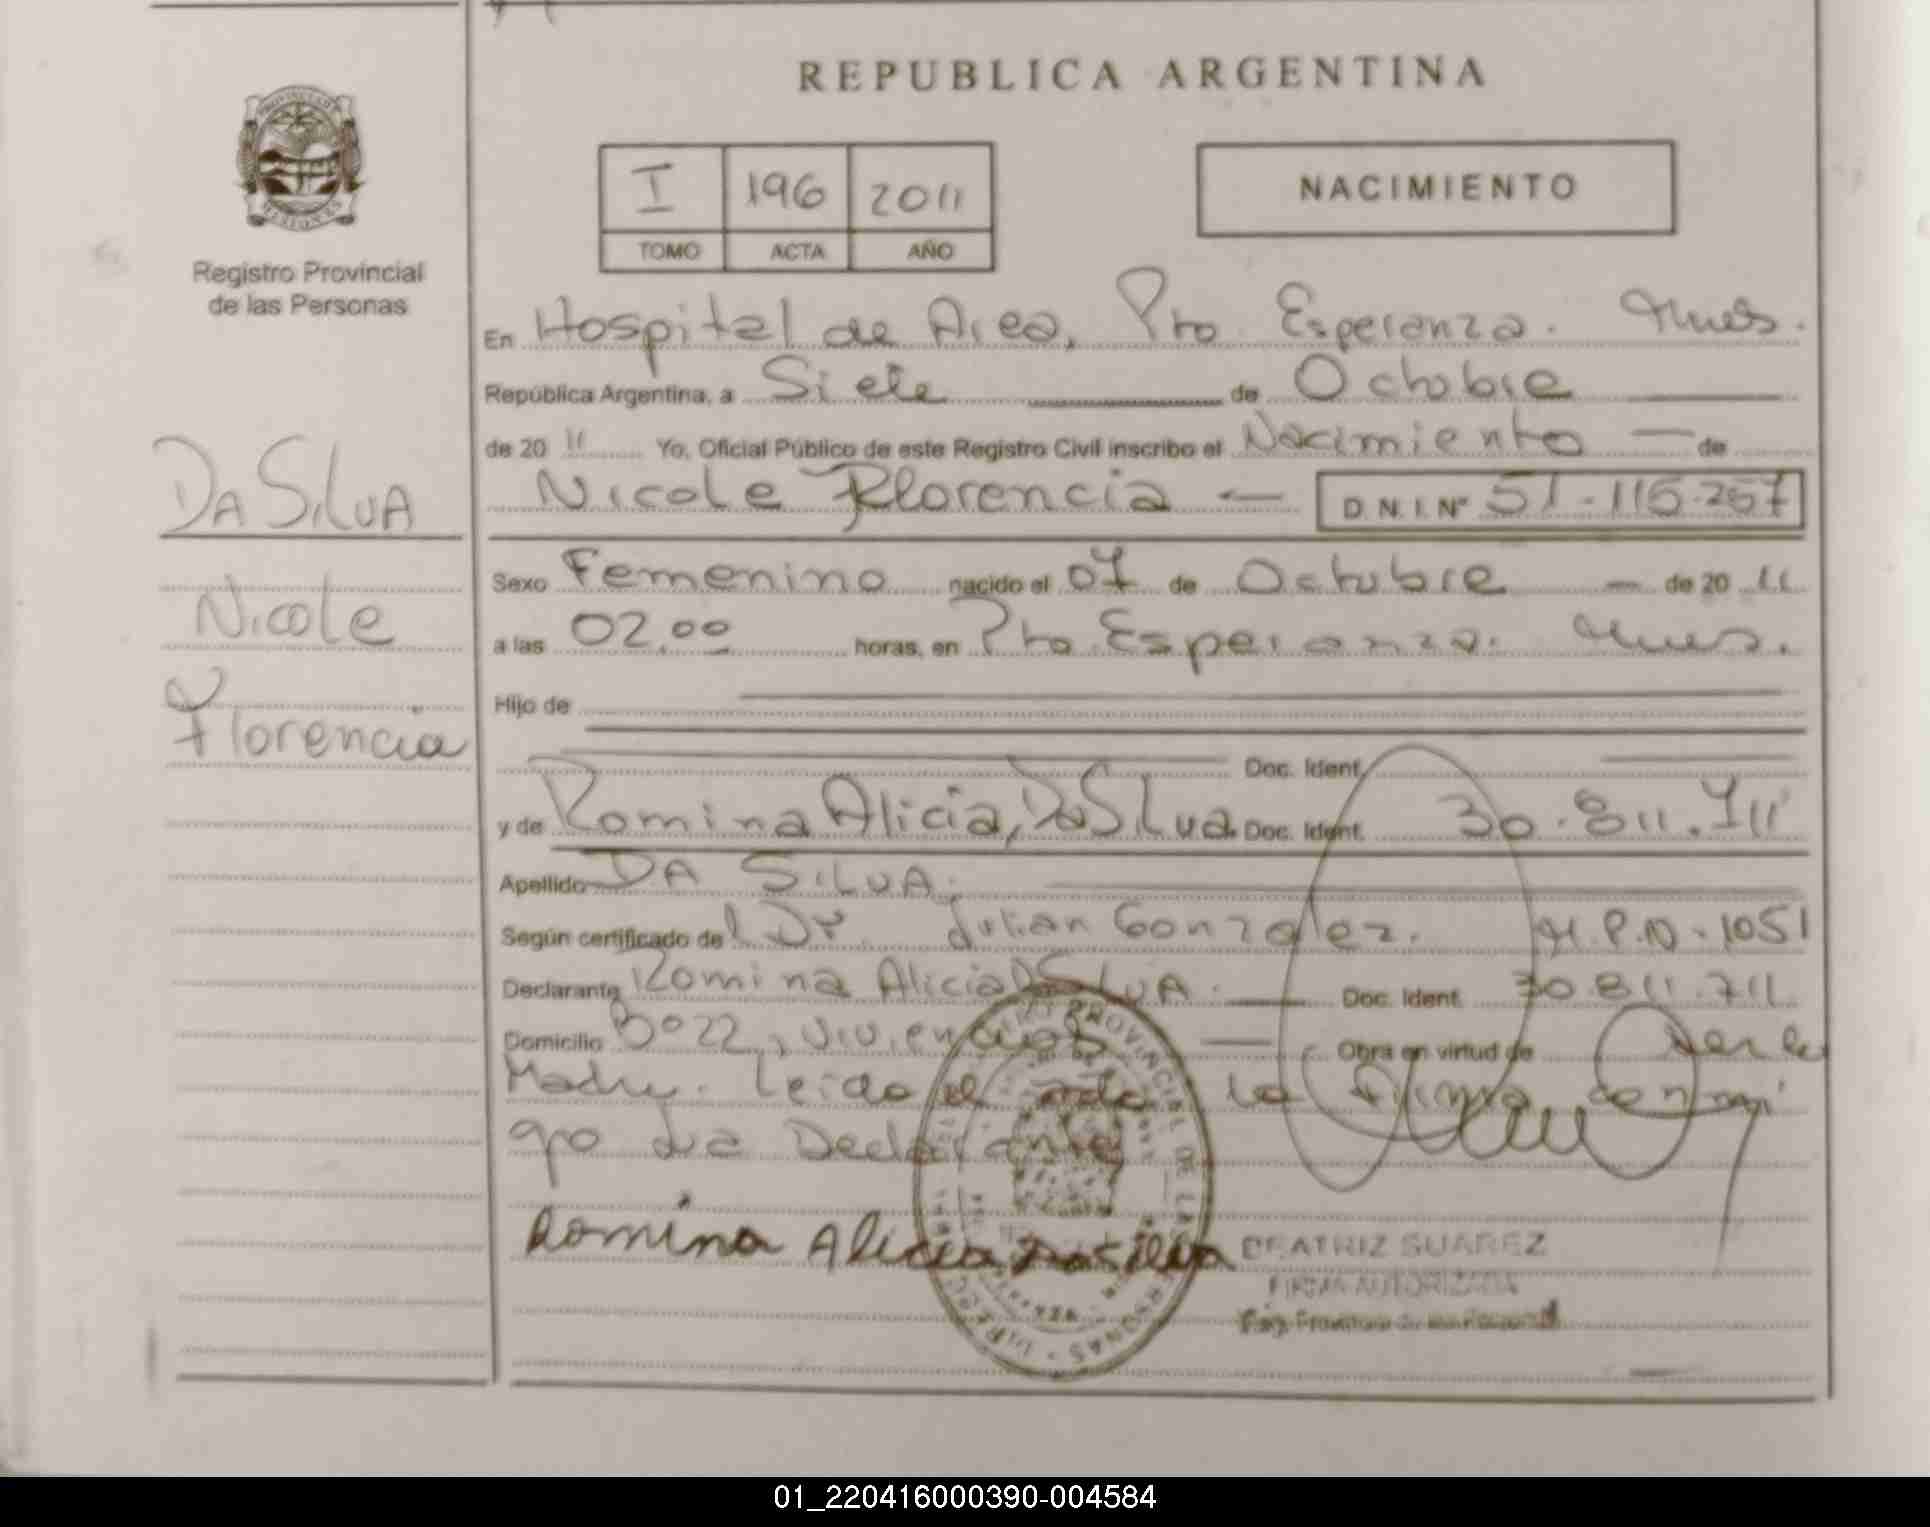 REPUBLICA ARGENTINA
I 196 2011
TOMO ACTA AÑO
NACIMIENTO
Registro Provincial
de las Personas
En Hospital de Area, Pto Esperanza. Mnes.
República Argentina, a Siete de Octubre
de 20 11 Yo, Oficial Público de este Registro Civil inscribo el Nacimiento de
Nicole Florencia D.N.I. Nº 51.115.257
DA SILVA
Nicole
Florencia
Sexo Femenino nacido el 07 de Octubre de 20 11
a las 02.00 horas, en Pto Esperanza. Mnes.
Hijo de
Doc. Ident.
y de Romina Alicia, Da Silva. Doc. Ident. 30.811.711
Apellido DA SILVA.
Según certificado de l Dr Julian Gonzalez. M.P.N.1051
Declarante Romina Alicia Da Silva. Doc. Ident. 30.811.711
Domicilio Bº 22, Viviendas Obra en virtud de ser la
Madre. Leido el acta la firma conmi
go la Declarante
Romina Alicia Dasilva
BEATRIZ SUAREZ
FIRMA AUTORIZADA
01_220416000390-004584